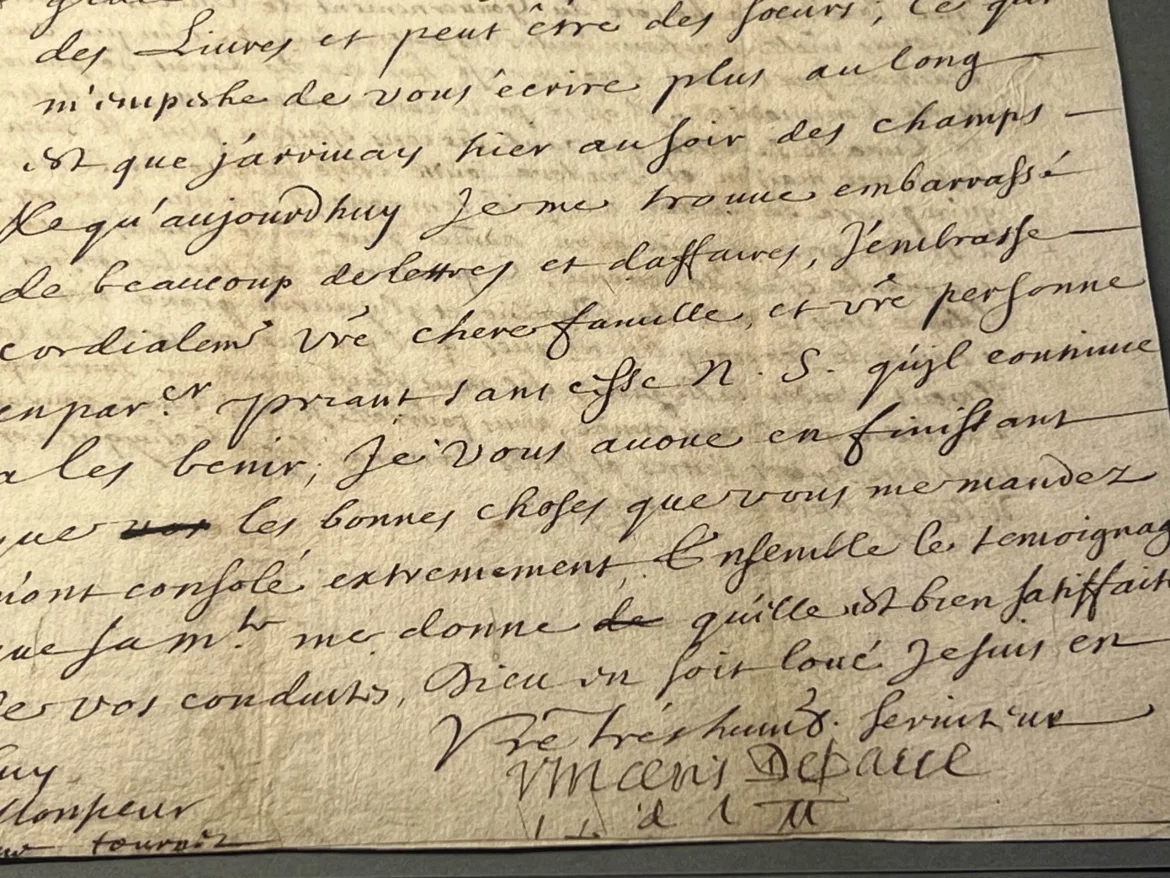 des Liures et peut être des soeurs; Ce qui
m'empeshe de vous écrire plus au long
est que j'arriuay hier au soir des champs
Et qu'aujourdhuy Je me trouue embarrassé
de beaucoup de lettres et daffaires, J'embrasse
cordialemt vrē chere famille, et vrē personne
en par.er priant sans cesse N. S. qu'jl continue
a les benir; Je vous auoue en finissant
que vos les bonnes choses que vous me mandez
m'ont consolé extremement, Ensemble le temoignag
que sa m.té me donne de qu'elle est bien satisfaite
de vos conduites, Dieu en soit loué Je suis en
Vrē trés humb. seruiteur
Vincent Depaul
i. s. d. l. M